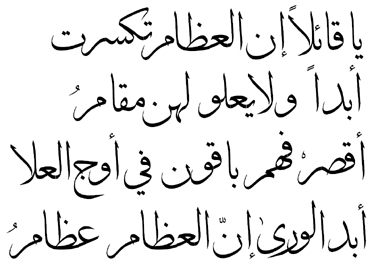 يا قائلاً إن العظام تكسرت
أبداً ولا يعلو لهن مقامُ
أقصرْ فهم باقون في أوج العلا
أبد الورىٰ إنّ العظام عظامُ